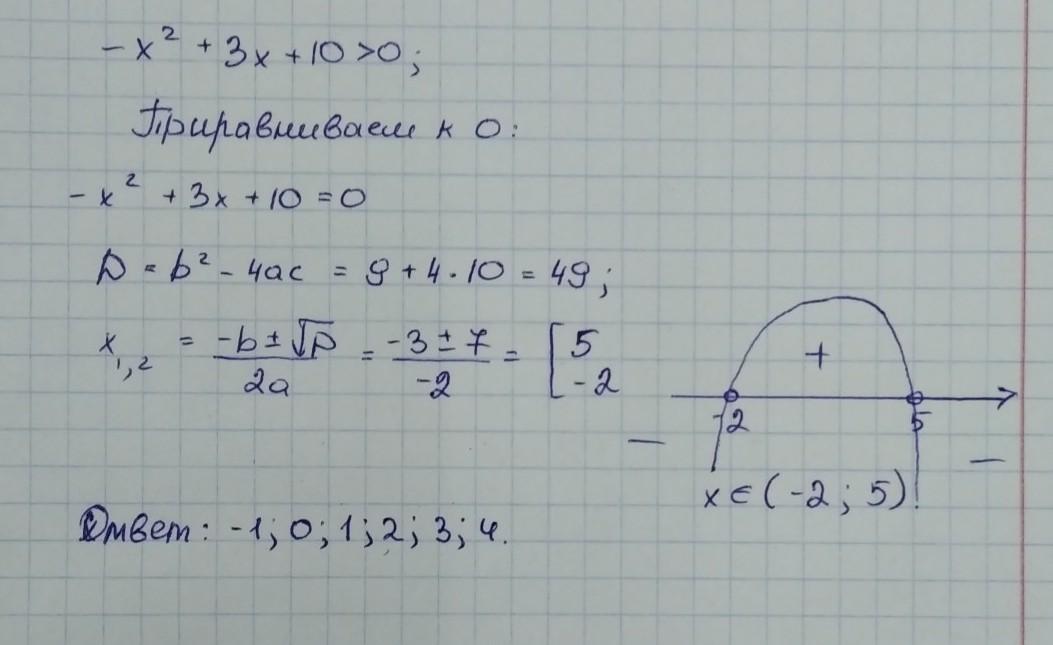 -x² + 3x + 10 > 0;
Приравниваем к 0:
-x² + 3x + 10 = 0
D = b² - 4ac = 9 + 4·10 = 49;
x₁,₂ = (-b ± √D)/(2a) = (-3 ± 7)/(-2) = [5
-2
+
-2 5
— —
x ∈ (-2; 5)
Ответ: -1; 0; 1; 2; 3; 4.